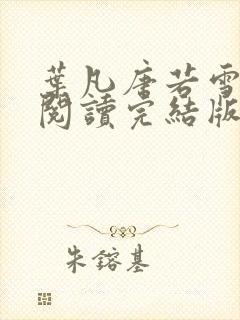 葉凡唐若雪
閱讀完結版
朱鎔基